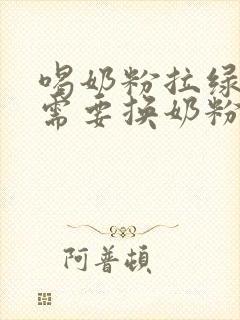 喝奶粉拉绿
需要换奶粉
阿普顿